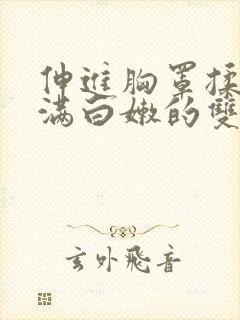 伸進胸罩揉
满白嫩的雙
玄外飛音